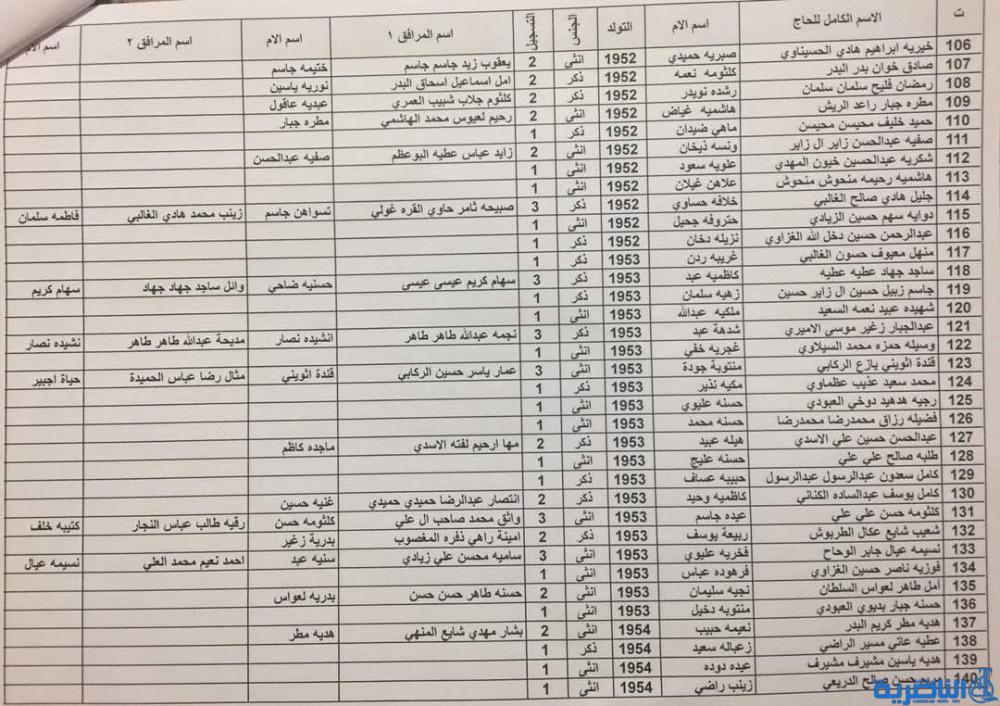 ت الاسم الكامل للحاج اسم الام التولد الجنس التسجيل اسم المرافق ١ اسم الام اسم المرافق ٢ اسم الام
106 خيريه ابراهيم هادي الحسيناوي صبريه حميدي 1952 انثى 2 يعقوب زيد جاسم جاسم ختيمه جاسم
107 صادق خوان بدر البدر كلثومه نعمه 1952 ذكر 2 امل اسماعيل اسحاق البدر نوريه ياسين
108 رمضان فليح سلمان سلمان رشده نويدر 1952 ذكر 2 كلثوم جلاب شبيب العمري عبديه عاقول
109 مطره جبار راعد الريش هاشميه غياض 1952 انثى 2 رحيم لعيوس محمد الهاشمي مطره جبار
110 حميد خليف محيسن محيسن ماهي ضيدان 1952 ذكر 1
111 صفيه عبدالحسن زاير ال زاير ونسه ذيخان 1952 انثى 2 زايد عباس عطيه البوعظم صفيه عبدالحسن
112 شكريه عبدالحسين خيون المهدي علويه سعود 1952 انثى 1
113 هاشميه رحيمه منحوش منحوش علاهن غيلان 1952 انثى 1
114 جليل هادي صالح الغالبي خلافه حساوي 1952 ذكر 3 صبيحه ثامر حاوي القره غولي تسواهن جاسم زينب محمد هادي الغالبي فاطمه سلمان
115 دوايه سهم حسين الزيادي حتروفه جحيل 1952 انثى 1
116 عبدالرحمن حسين دخل الله الغزاوي نزيله دخان 1952 ذكر 1
117 منهل معيوف حسون الغالبي غريبه ردن 1953 ذكر 1
118 ساجد جهاد عطيه عطيه كاظميه عبد 1953 ذكر 3 سهام كريم عيسى عيسى حسنيه ضاحي وائل ساجد جهاد جهاد سهام كريم
119 جاسم زبيل حسين ال زاير حسين زهيه سلمان 1953 ذكر 1
120 شهيده عبيد نعمه السعيد ملكيه عبدالله 1953 انثى 1
121 عبدالجبار زغير موسى الاميري شدهة عبد 1953 ذكر 3 نجمه عبدالله طاهر طاهر انشيده نصار مديحة عبدالله طاهر طاهر نشيده نصار
122 وسيله حمزه محمد السيلاوي غجريه خفي 1953 انثى 1
123 قندة اثويني يازع الركابي منتوبة جودة 1953 انثى 3 عمار ياسر حسين الركابي قندة اثويني مثال رضا عباس الحميدة حياة اجبير
124 محمد سعيد عذيب عظماوي مكيه نذير 1953 ذكر 1
125 رجيه هدهيد دوخي العبودي حسنه عليوي 1953 انثى 1
126 فضيله رزاق محمدرضا محمدرضا حسنه محمد 1953 انثى 1
127 عبدالحسن حسين علي الاسدي هيله عبيد 1953 ذكر 2 مها ارحيم لفته الاسدي ماجده كاظم
128 طلبه صالح علي علي حسنه عليج 1953 انثى 1
129 كامل سعدون عبدالرسول عبدالرسول حبيبه عساف 1953 ذكر 1
130 كامل يوسف عبدالساده الكناني كاظميه وحيد 1953 ذكر 2 انتصار عبدالرضا حميدي حميدي غنيه حسين
131 كلثومه حسن علي علي عيده جاسم 1953 انثى 3 واثق محمد صاحب ال علي كلثومه حسن رقيه طالب عباس النجار كتيبه خلف
132 شعيب شايع عكال الطربوش ربيعة يوسف 1953 ذكر 2 امينة راهي ذفره المغصوب بدرية زغير
133 نسيمه عيال جابر الوحاح فخريه عليوي 1953 انثى 3 ساميه محسن علي زيادي سنيه عبد احمد نعيم محمد العلي نسيمه عيال
134 فوزيه ناصر حسين الغزاوي فرهوده عباس 1953 انثى 1
135 امل طاهر لعواس السلطان نجيه سليمان 1953 انثى 2 حسنه طاهر حسن حسن بدريه لعواس
136 حسنه جبار بديوي العبودي منتوبه دخيل 1953 انثى 1
137 هديه مطر كريم البدر نعيمه حبيب 1954 انثى 2 بشار مهدي شايع المنهي هديه مطر
138 عطيه عاتي مسير الراضي زعباله سعيد 1954 ذكر 1
139 هديه ياسين مشيرف مشيرف عيده دوده 1954 انثى 1
140 مريم حسن صالح الدريعي زينب راضي 1954 انثى 1
الناصرية